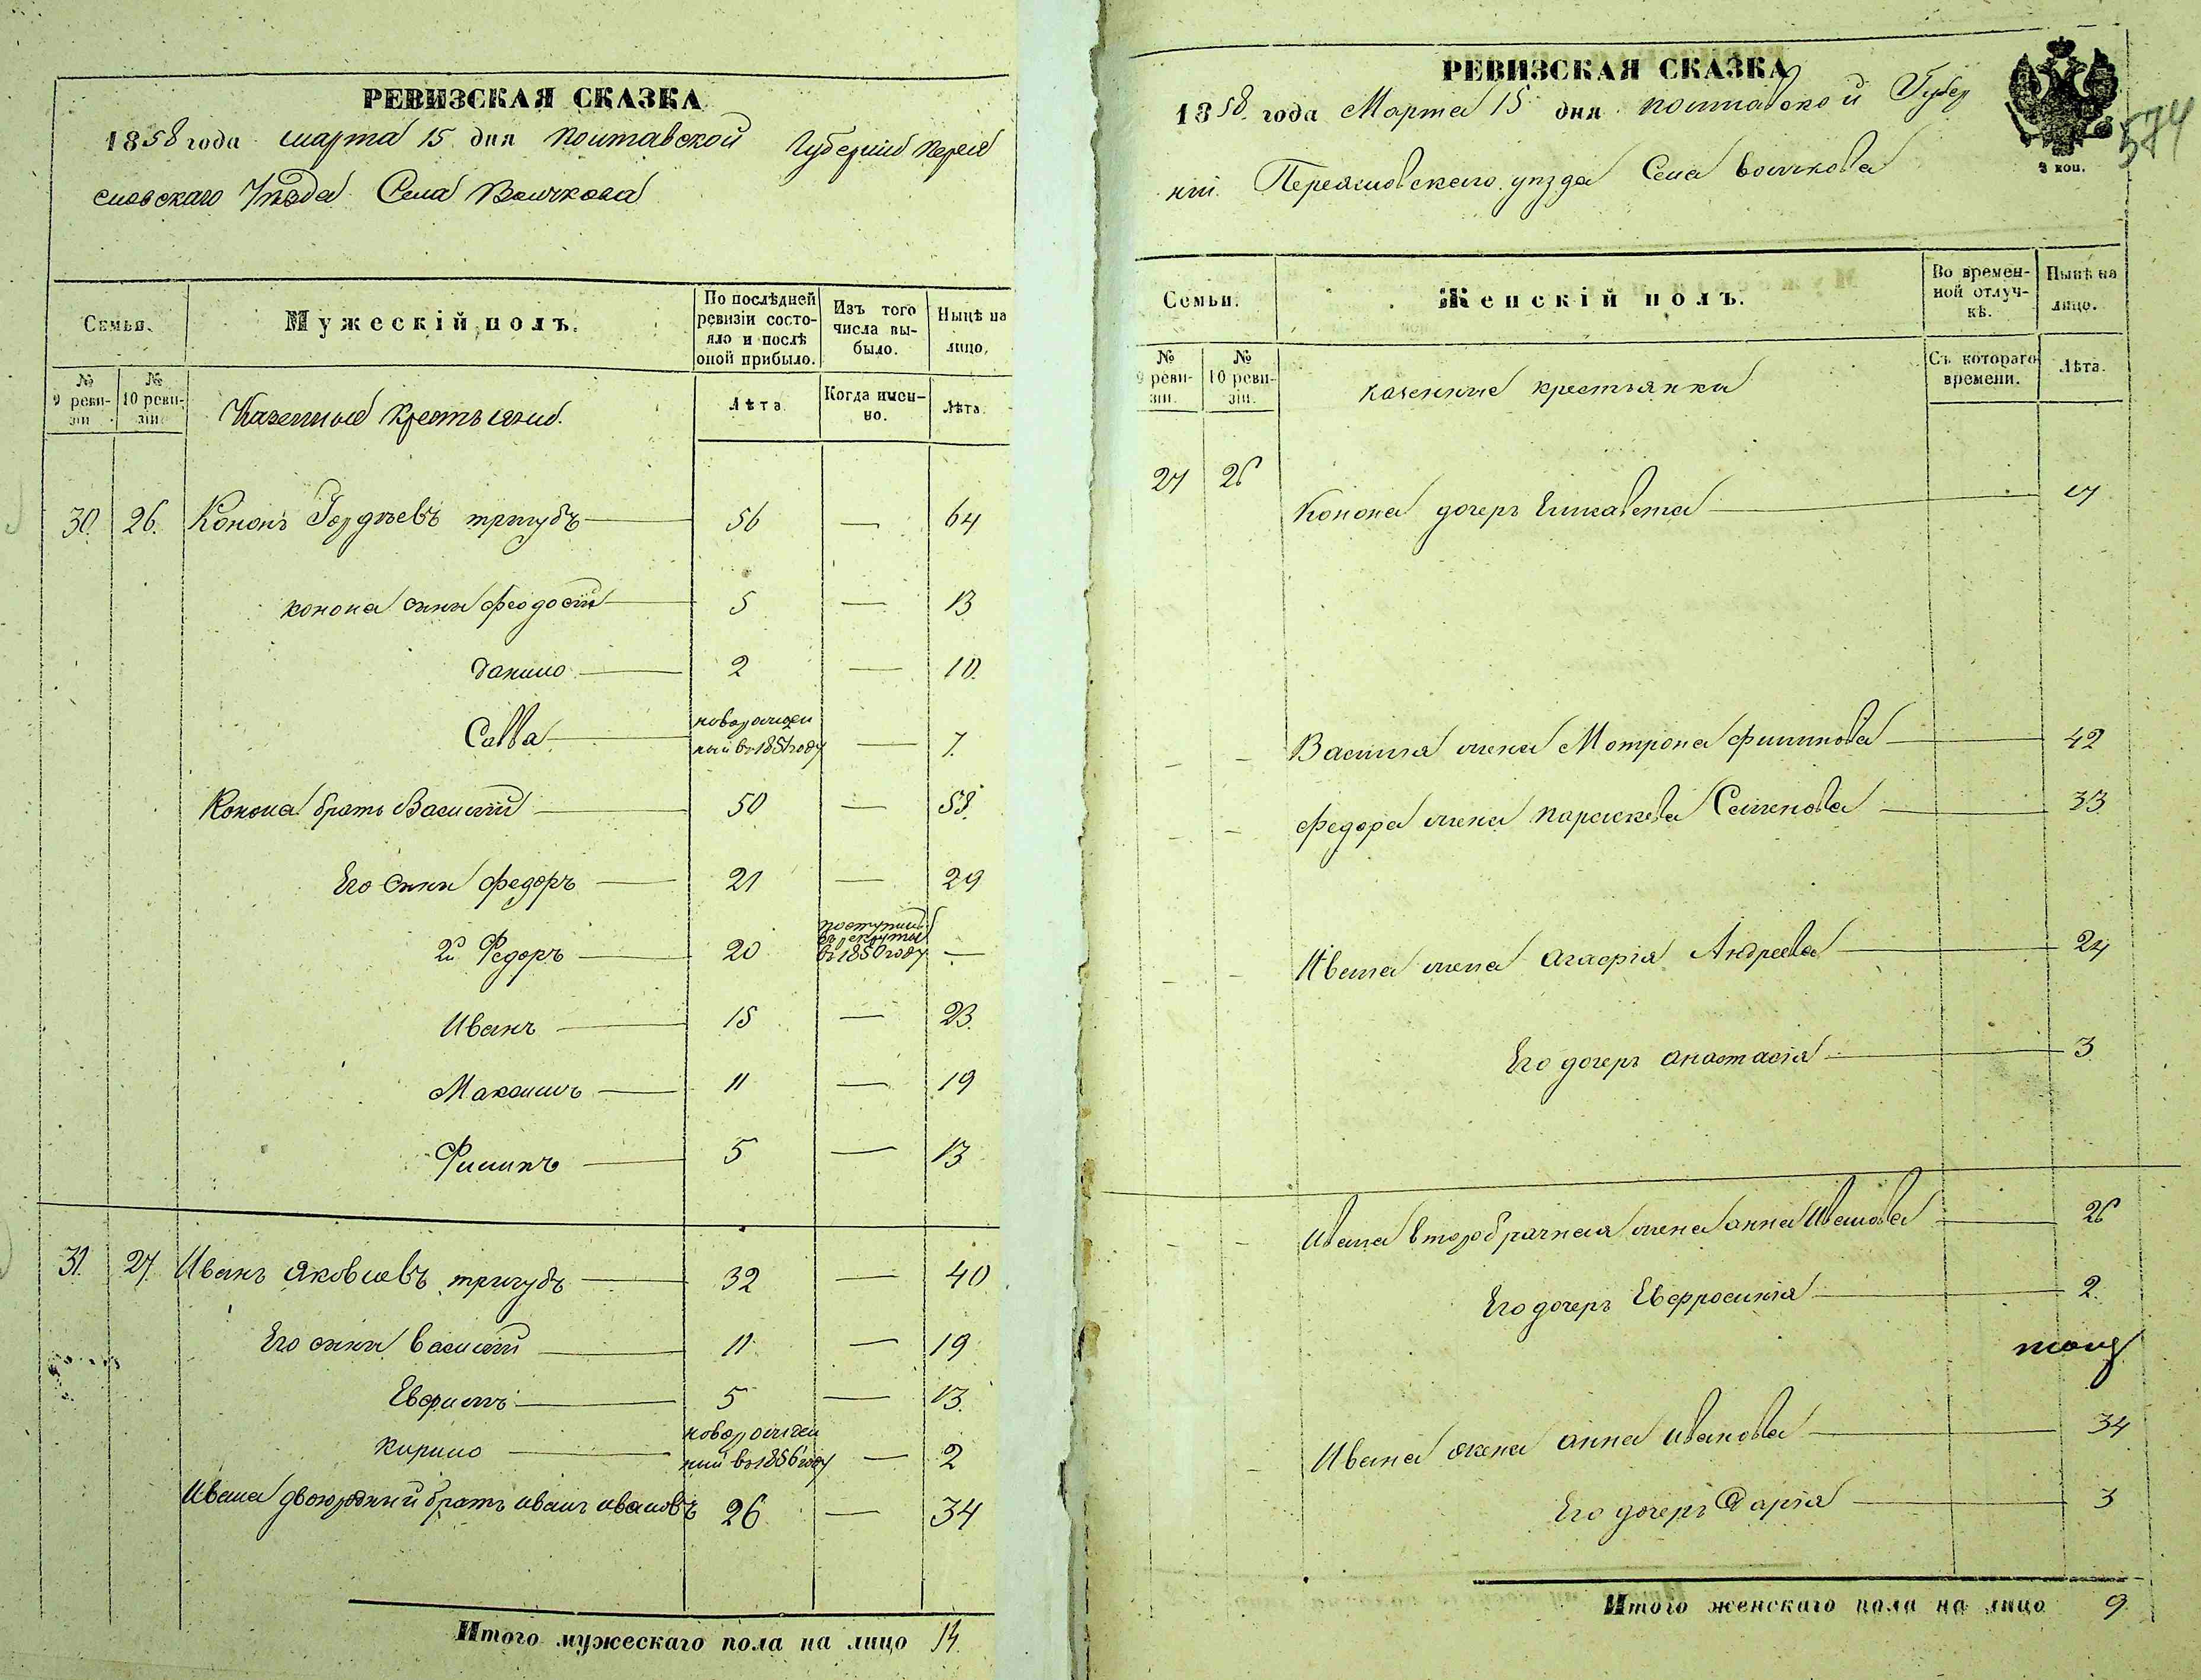 РЕВИЗСКАЯ СКАЗКА
1858 года марта 15 дня Полтавской Губернии Перея
словскаго Уѣзда Села Волчкова
Семьи. Мужескій полъ. По послѣдней ревизіи состояло и послѣ оной прибыло. Изъ того числа выбыло. Нынѣ на лицо.
№ 9 ревизіи. № 10 ревизіи. Казенные Крестьяне. Лѣта. Когда именно. Лѣта.
30 26. Кононъ Гордѣевъ тригубъ 56 — 64
Конона сыны Феодосій 5 — 13
данило 2 — 10.
Савва новорожден
ный въ 1851 году — 7.
Конона братъ Василій 50 — 58.
Его сыны Федоръ 21 — 29
2й Федоръ 20 поступил
в рекруты
въ 1850 году —
Иванъ 15 — 23.
Максимъ 11 — 19
Филипъ 5 — 13
31. 27. Иванъ Яковлевъ тригубъ 32 — 40
Его сыны василій 11 — 19
Евфимъ 5 — 13.
Кирило новорожден
ный въ 1856 году — 2
Ивана двоюродный братъ иванъ ивановъ 26 — 34
Итого мужескаго пола на лицо 14.
РЕВИЗСКАЯ СКАЗКА
1858 года Марта 15 дня полтавской Губер
ніи Переясловскаго уѣзда Села волчкова
574
3 коп.
Семьи. Женскій полъ. Во временной отлучкѣ. Нынѣ на лицо.
№ 9 ревизіи. № 10 ревизіи. казенние крестьянки Съ котораго времени. Лѣта.
27 26 Конона дочерь Елисавета 17
- - Василія жена Мотрона Филипова 42
- - Федора жена параскева Семенова 33
- - Ивана жена агафія Андреева 24
Его дочерь анастасія 3
- - Ивана второбрачная жена анна Иванова 26
Его дочерь Евфросинія 2.
- Ивана жена анна иванова 34
Его дочерь Дарія 3
Итого женскаго пола на лицо 9